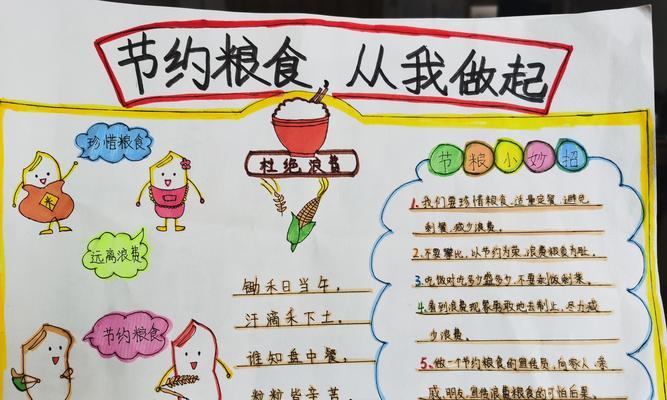 节约粮食,从我做起
珍惜粮食
杜绝浪费
远离浪费
节约粮食
锄禾日当午,
汗滴禾下土。
谁知盘中餐,
粒粒皆辛苦。
节粮小妙招
1.我们要珍惜粮食,适量定餐,避免
剩餐,减少浪费。
2.不要攀比,以节约为荣,浪费粮食为耻。
3.吃饭时吃多少盛多少,不要剩饭剩菜。
4.看到浪费现象勇敢地去制止,尽力减
少浪费。
5.做一个节约粮食的宣传员,向家人、亲
戚、朋友,宣传浪费粮食的可怕后果。